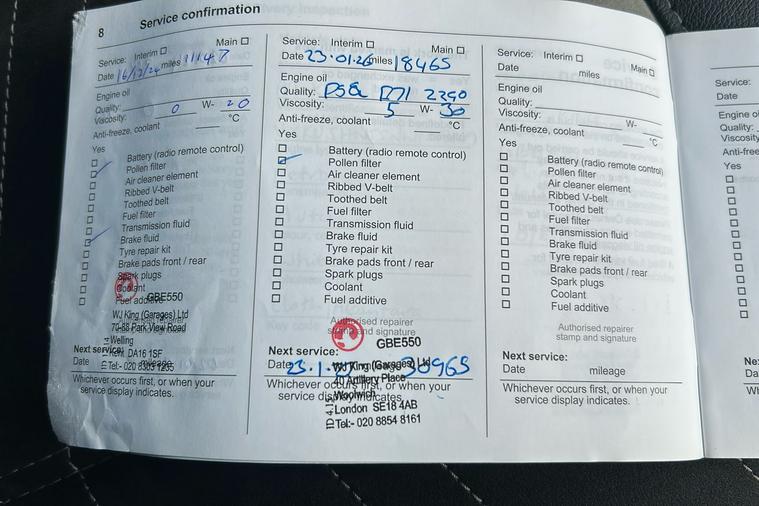 8 Service confirmation
Service: Interim Main
Date 16/12/24 miles 11147
Engine oil
Quality:
Viscosity: 0 W- 20
Anti-freeze, coolant °C
Yes
Battery (radio remote control)
Pollen filter
Air cleaner element
Ribbed V-belt
Toothed belt
Fuel filter
Transmission fluid
Brake fluid
Tyre repair kit
Brake pads front / rear
Spark plugs
Coolant
Fuel additive
GBE550
WJ King (Garages) Ltd
70-88 Park View Road
Welling
Kent, DA16 1SF
Tel:- 020 8303 1235
Next service:
Date mileage
Whichever occurs first, or when your
service display indicates.
Service: Interim Main
Date 23.01.26 miles 18465
Engine oil
Quality: 2290
Viscosity: 5 W- 30
Anti-freeze, coolant °C
Yes
Battery (radio remote control)
Pollen filter
Air cleaner element
Ribbed V-belt
Toothed belt
Fuel filter
Transmission fluid
Brake fluid
Tyre repair kit
Brake pads front / rear
Spark plugs
Coolant
Fuel additive
Authorised repairer
stamp and signature
GBE550
WJ King (Garages) Ltd
40 Artillery Place
Woolwich
London SE18 4AB
Tel:- 020 8854 8161
Next service:
Date 23.1. 30965
Whichever occurs first, or when your
service display indicates.
Service: Interim Main
Date miles
Engine oil
Quality:
Viscosity: W-
Anti-freeze, coolant °C
Yes
Battery (radio remote control)
Pollen filter
Air cleaner element
Ribbed V-belt
Toothed belt
Fuel filter
Transmission fluid
Brake fluid
Tyre repair kit
Brake pads front / rear
Spark plugs
Coolant
Fuel additive
Authorised repairer
stamp and signature
Next service:
Date mileage
Whichever occurs first, or when your
service display indicates.
Service:
Date
Quality:
Yes